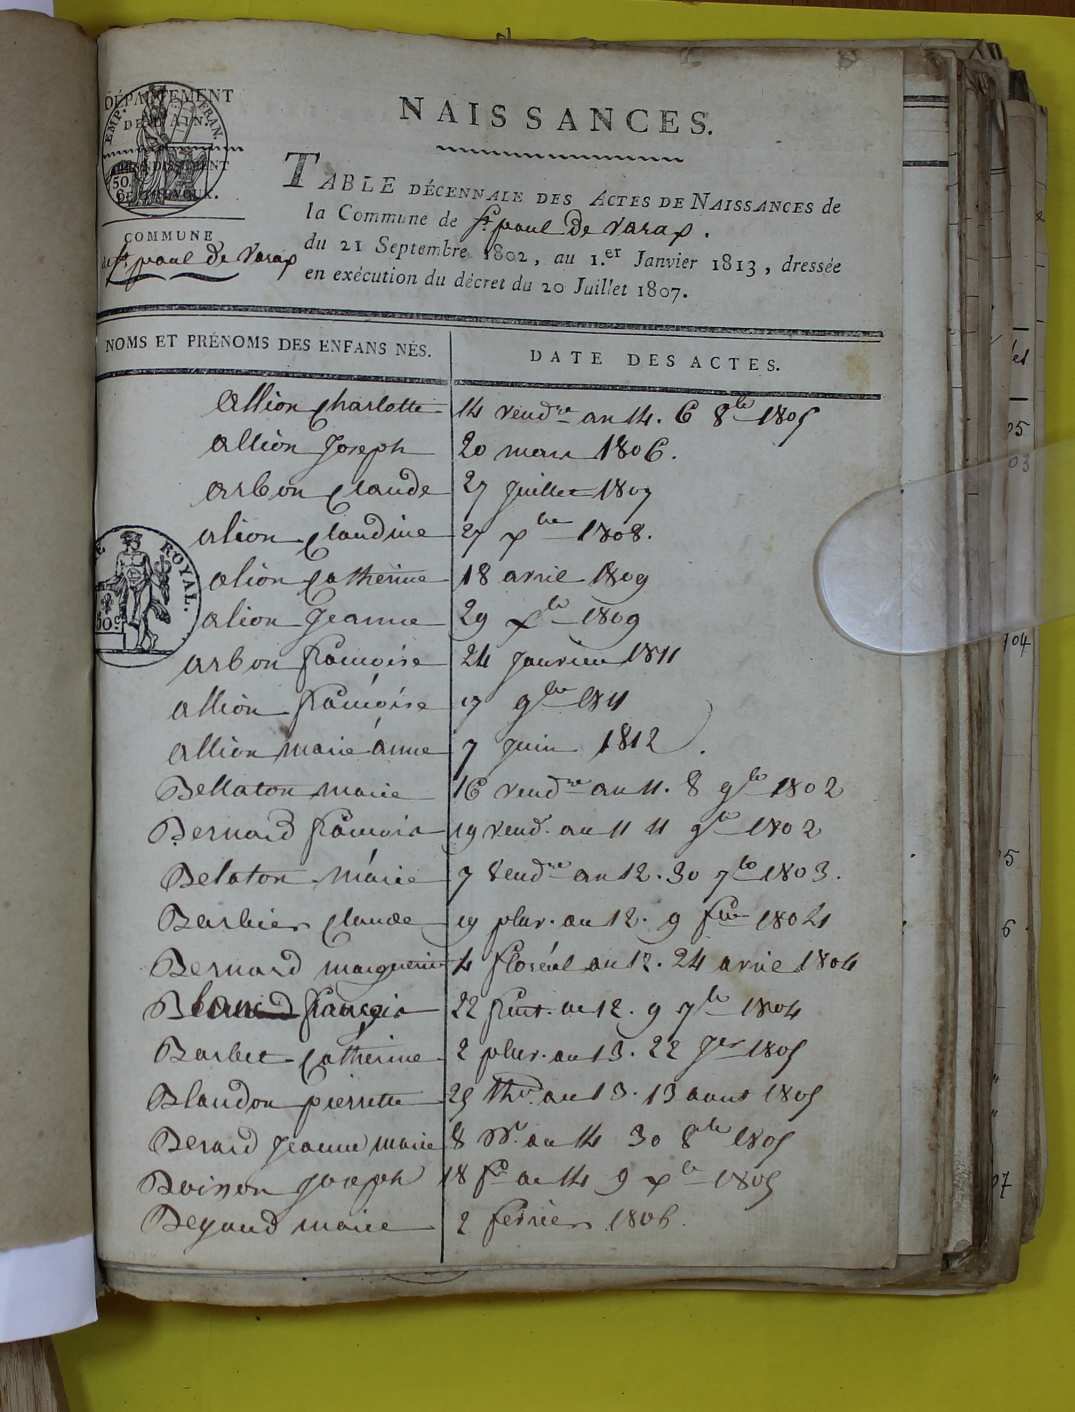 DÉPARTEMENT
DE L'AIN.
EMP. FRAN.
ARRONDISSEMENT
50
DE TRÉVOUX.
COMMUNE
de St. paul de Varax
NAISSANCES.
TABLE DÉCENNALE DES ACTES DE NAISSANCES de
la Commune de St. paul de Varax.
du 21 Septembre 1802, au 1.er Janvier 1813, dressée
en exécution du décret du 20 Juillet 1807.
NOMS ET PRÉNOMS DES ENFANS NÉS. DATE DES ACTES.
Allion Charlotte 14 vendre an 14. 6 8bre 1805
allion Joseph 20 mars 1806.
arbon Claude 27 Juillet 1807
alion Claudine 27 xbre 1808.
alion Catherine 18 avril 1809
alion Jeanne 29 xbre 1809
arbon françoise 24 Janvier 1811
allion françoise 17 9bre 1811
allion marie anne 7 Juin 1812.
Bellaton marie 16 vendre an 11. 8 9bre 1802
Bernard françois 19 vend. an 11 11 9bre 1802
Belaton marie 7 Vendre an 12. 30 7bre 1803.
Barbier Claude 19 pluv. an 12. 9 fer 1804
Bernard marguerite 4 floréal an 12. 24 avril 1804
françois 22 fruct. an 12. 9 7bre 1804
Barbet Catherine 2 pluv. an 13. 22 Jer 1805
Blandon pierrette 25 thr. an 13. 13 aout 1805
Berard Jeanne marie 8 Bre. an 14 30 8bre 1805
Boisson Joseph 18 fre an 14 9 xbre 1805
Beyaud marie 2 fevrier 1806.
ROYAL.
50c